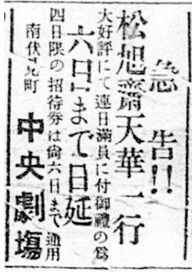 急告!!
松旭齋天華一行
大好評にて連日滿員に付御禮の爲
六日まで日延
四日限の招待劵は尙六日まで通用
南伏見町
中央劇塲